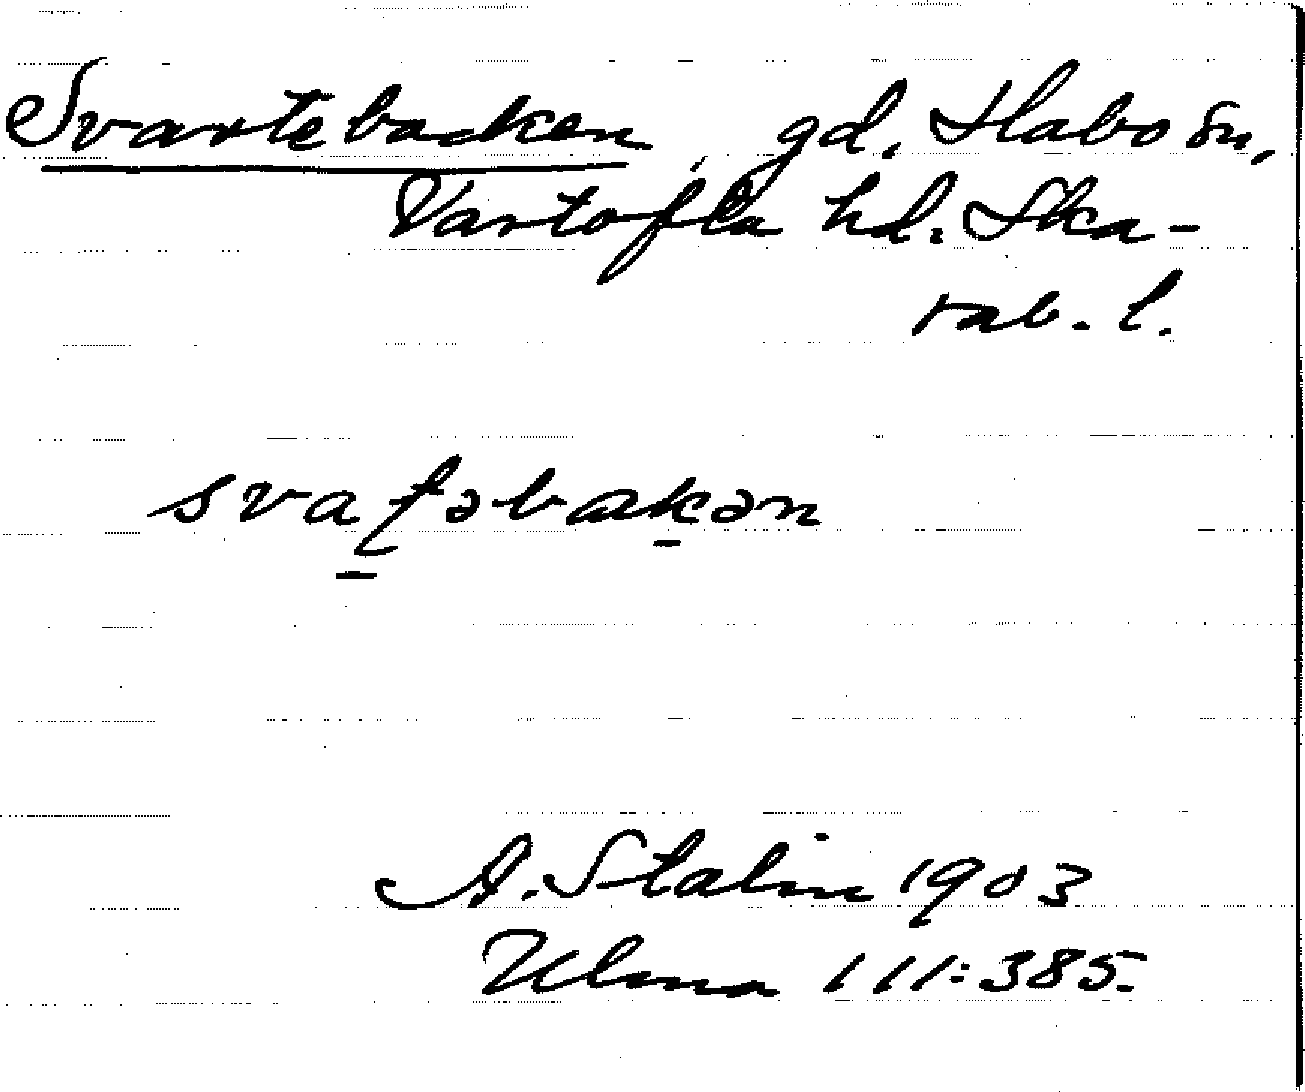 Svartebacken, gd. Habo sn,
Vartofta hd. Ska-
rab. l.
svaʈəbakən
A. Stalin 1903
Ulma 111:385.